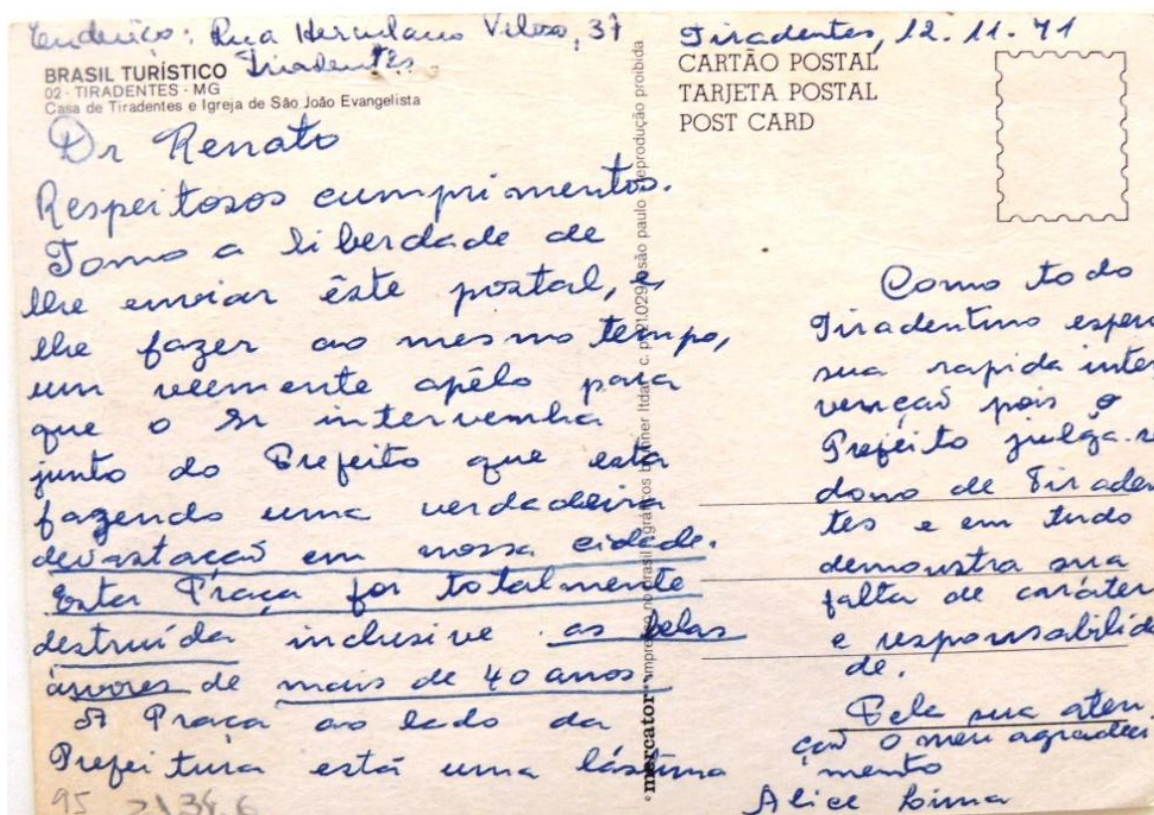 Endereço: Rua Herculano Veloso, 37
Tiradentes.
BRASIL TURÍSTICO
02 - TIRADENTES - MG
Casa de Tiradentes e Igreja de São João Evangelista
Dr Renato
Respeitosos cumprimentos.
Tomo a liberdade de
lhe enviar êste postal, e,
lhe fazer ao mesmo tempo,
um veemente apêlo para
que o Sr intervenha
junto do Prefeito que está
fazendo uma verdadeira
devastação em nossa cidade.
Esta Praça foi totalmente
destruída inclusive as belas
árvores de mais de 40 anos.
A Praça ao lado da
Prefeitura está uma lástima
95
mercator
impresso no brasil gráficos brunner ltda. c. p. 21.029 são paulo reprodução proibida
Tiradentes, 12.11.71
CARTÃO POSTAL
TARJETA POSTAL
POST CARD
Como todo
Tiradentino espero
sua rapida inter
venção pois o
Prefeito julga-se
dono de Tiraden
tes e em tudo
demonstra sua
falta de caráter
e responsabilida
de.
Pela sua aten
ção o meu agradeci
mento
Alice Lima